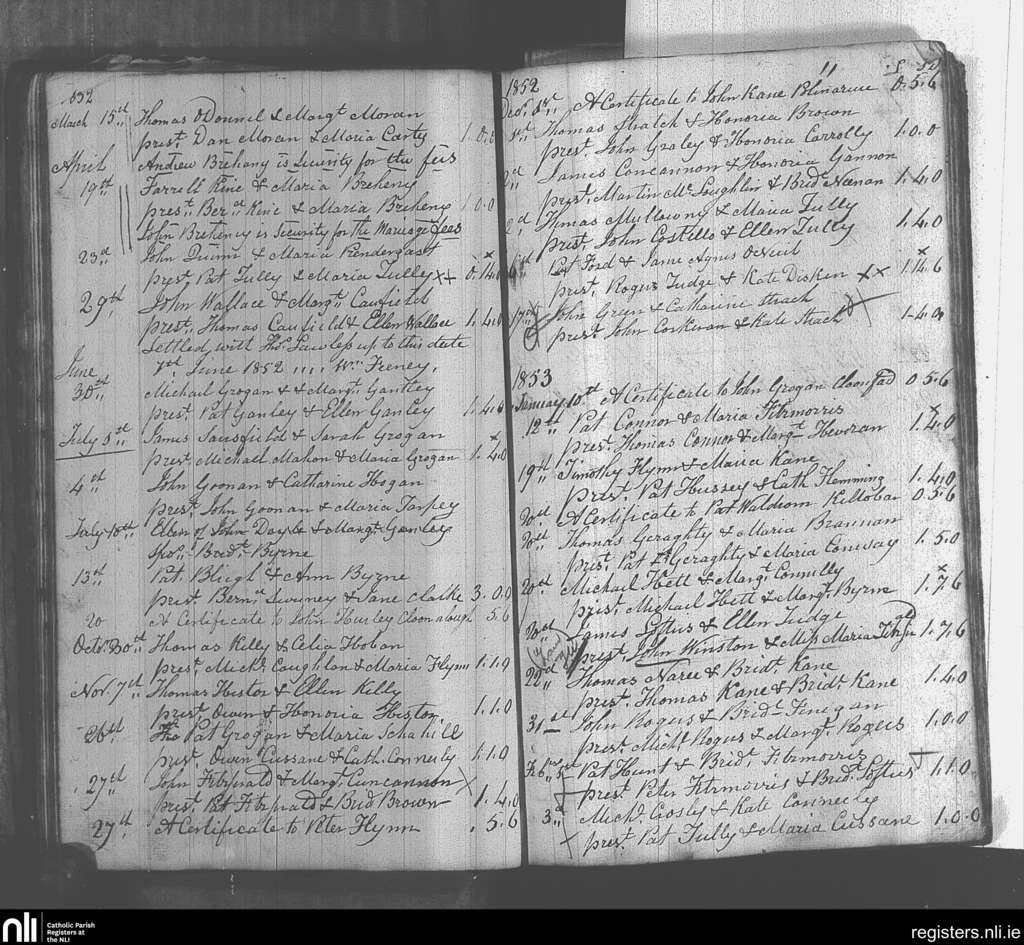 1852
March 15th Thomas O Donnel & Margt Moran
prest Dan Moran & Maria Carty 1.0.0
April Andrew Brehany is Security for the fees
19th Farrell Kine & Maria Breheny
prest Berd Kine & Maria Breheny 1.0.0
John Breheny is Security for the Marriage fees
23d John Quinn & Maria Prendergast
prest Pat Tully & Maria Tully xx 0.14.0
29th John Wallace & Margt Caufield
prest Thomas Caufield & Ellen Wallace 1.4.0
Settled with Thos Lawless up to this date
7d June 1852 Wm Freney,
June
30th Michael Grogan & Margt Gantley
prest Pat Ganley & Ellen Ganley 1.4.0
July James & Sarah Grogan
prest Michael Mahon & Maria Grogan 1.4.0
4th John Goonan & Catharine Hogan
prest John Goonan & Maria Tarpey
July 10th Ellen of John Doyle & Margt Ganley
Spo. Bridt Byrne
13th Pat Bligh & Ann Byrne
prest Bernd Sweeney & Jane Clarke 3.0.0
20 A Certificate to John Hurley Cloonalough 5.6
Octr 30th Thomas Killy & Celia Hoban
prest Michl Coughlan & Maria Flynn 1.1.9
Nov. 7th Thomas Heston & Ellen Killy
prest Owen & Honoria Heston, 1.1.0
26th Pat Grogan & Maria Schahill
prest Owen Cussane & Cath. Connerly 1.1.0
27th John Fitzgerald & Margt Cuncannon x
prest Pat Fitzgerald & Brid Brown 1.4.0
27th A Certificate to Peter Flynn . 5.6
1852 £ s d
Decr A Certificate to John Kane 0.5.6
Thomas & Honoria Brown
prest John Graley & Honoria Carrolly 1.0.0
James Concannon & Honoria Gannon
prest Martin Mc Loughlin & Bridt Neenan 1.4.0
2d Thomas Mullowny & Maria Tully
prest John Costillo & Ellen Tully 1.4.0
Pat Ford & Jane Agnes O Neill
prest Roger Judge & Kate Disken xx 1.14.6
17th John Green & Catharine
prest John Corkeran & Kate 1.4.0
1853
January 10th A Certificate to John Grogan Cloonfad 0.5.6
12th Pat Connor & Maria Fitzmorris
prest Thomas Connor & Margt Heveran 1.4.0
19th Timothy Flynn & Maria Kane
prest Pat Hussey & Cath Flemming 1.4.0
20d A Certificate to Pat Waldrom Killtobar 0.5.6
20d Thomas Geraghty & Maria Brannan
prest Pat Geraghty & Maria Conway 1.5.0
20d Michael Hett & Margt Connelly
prest Michael Hett & Margt Byrne 1.7.6
20d James Loftus & Ellen Judge
prest John Winston & Miss Maria 1.7.6
22d Thomas Naree & Bridt Kane
prest Thomas Kane & Bridt Kane 1.4.0
31st John Rogus & Bridt Finegan
prest Michl Rogus & Margt Rogus 1.0.0
Feb Pat Hunt & Bridt Fitzmorris
prest Peter Fitzmorris & Bridt Loftus 1.1.0
3d Michl Crosby & Kate Connerly
prest Pat Tully & Maria Cussane 1.0.0
nli Catholic Parish
Registers at
the NLI
registers.nli.ie